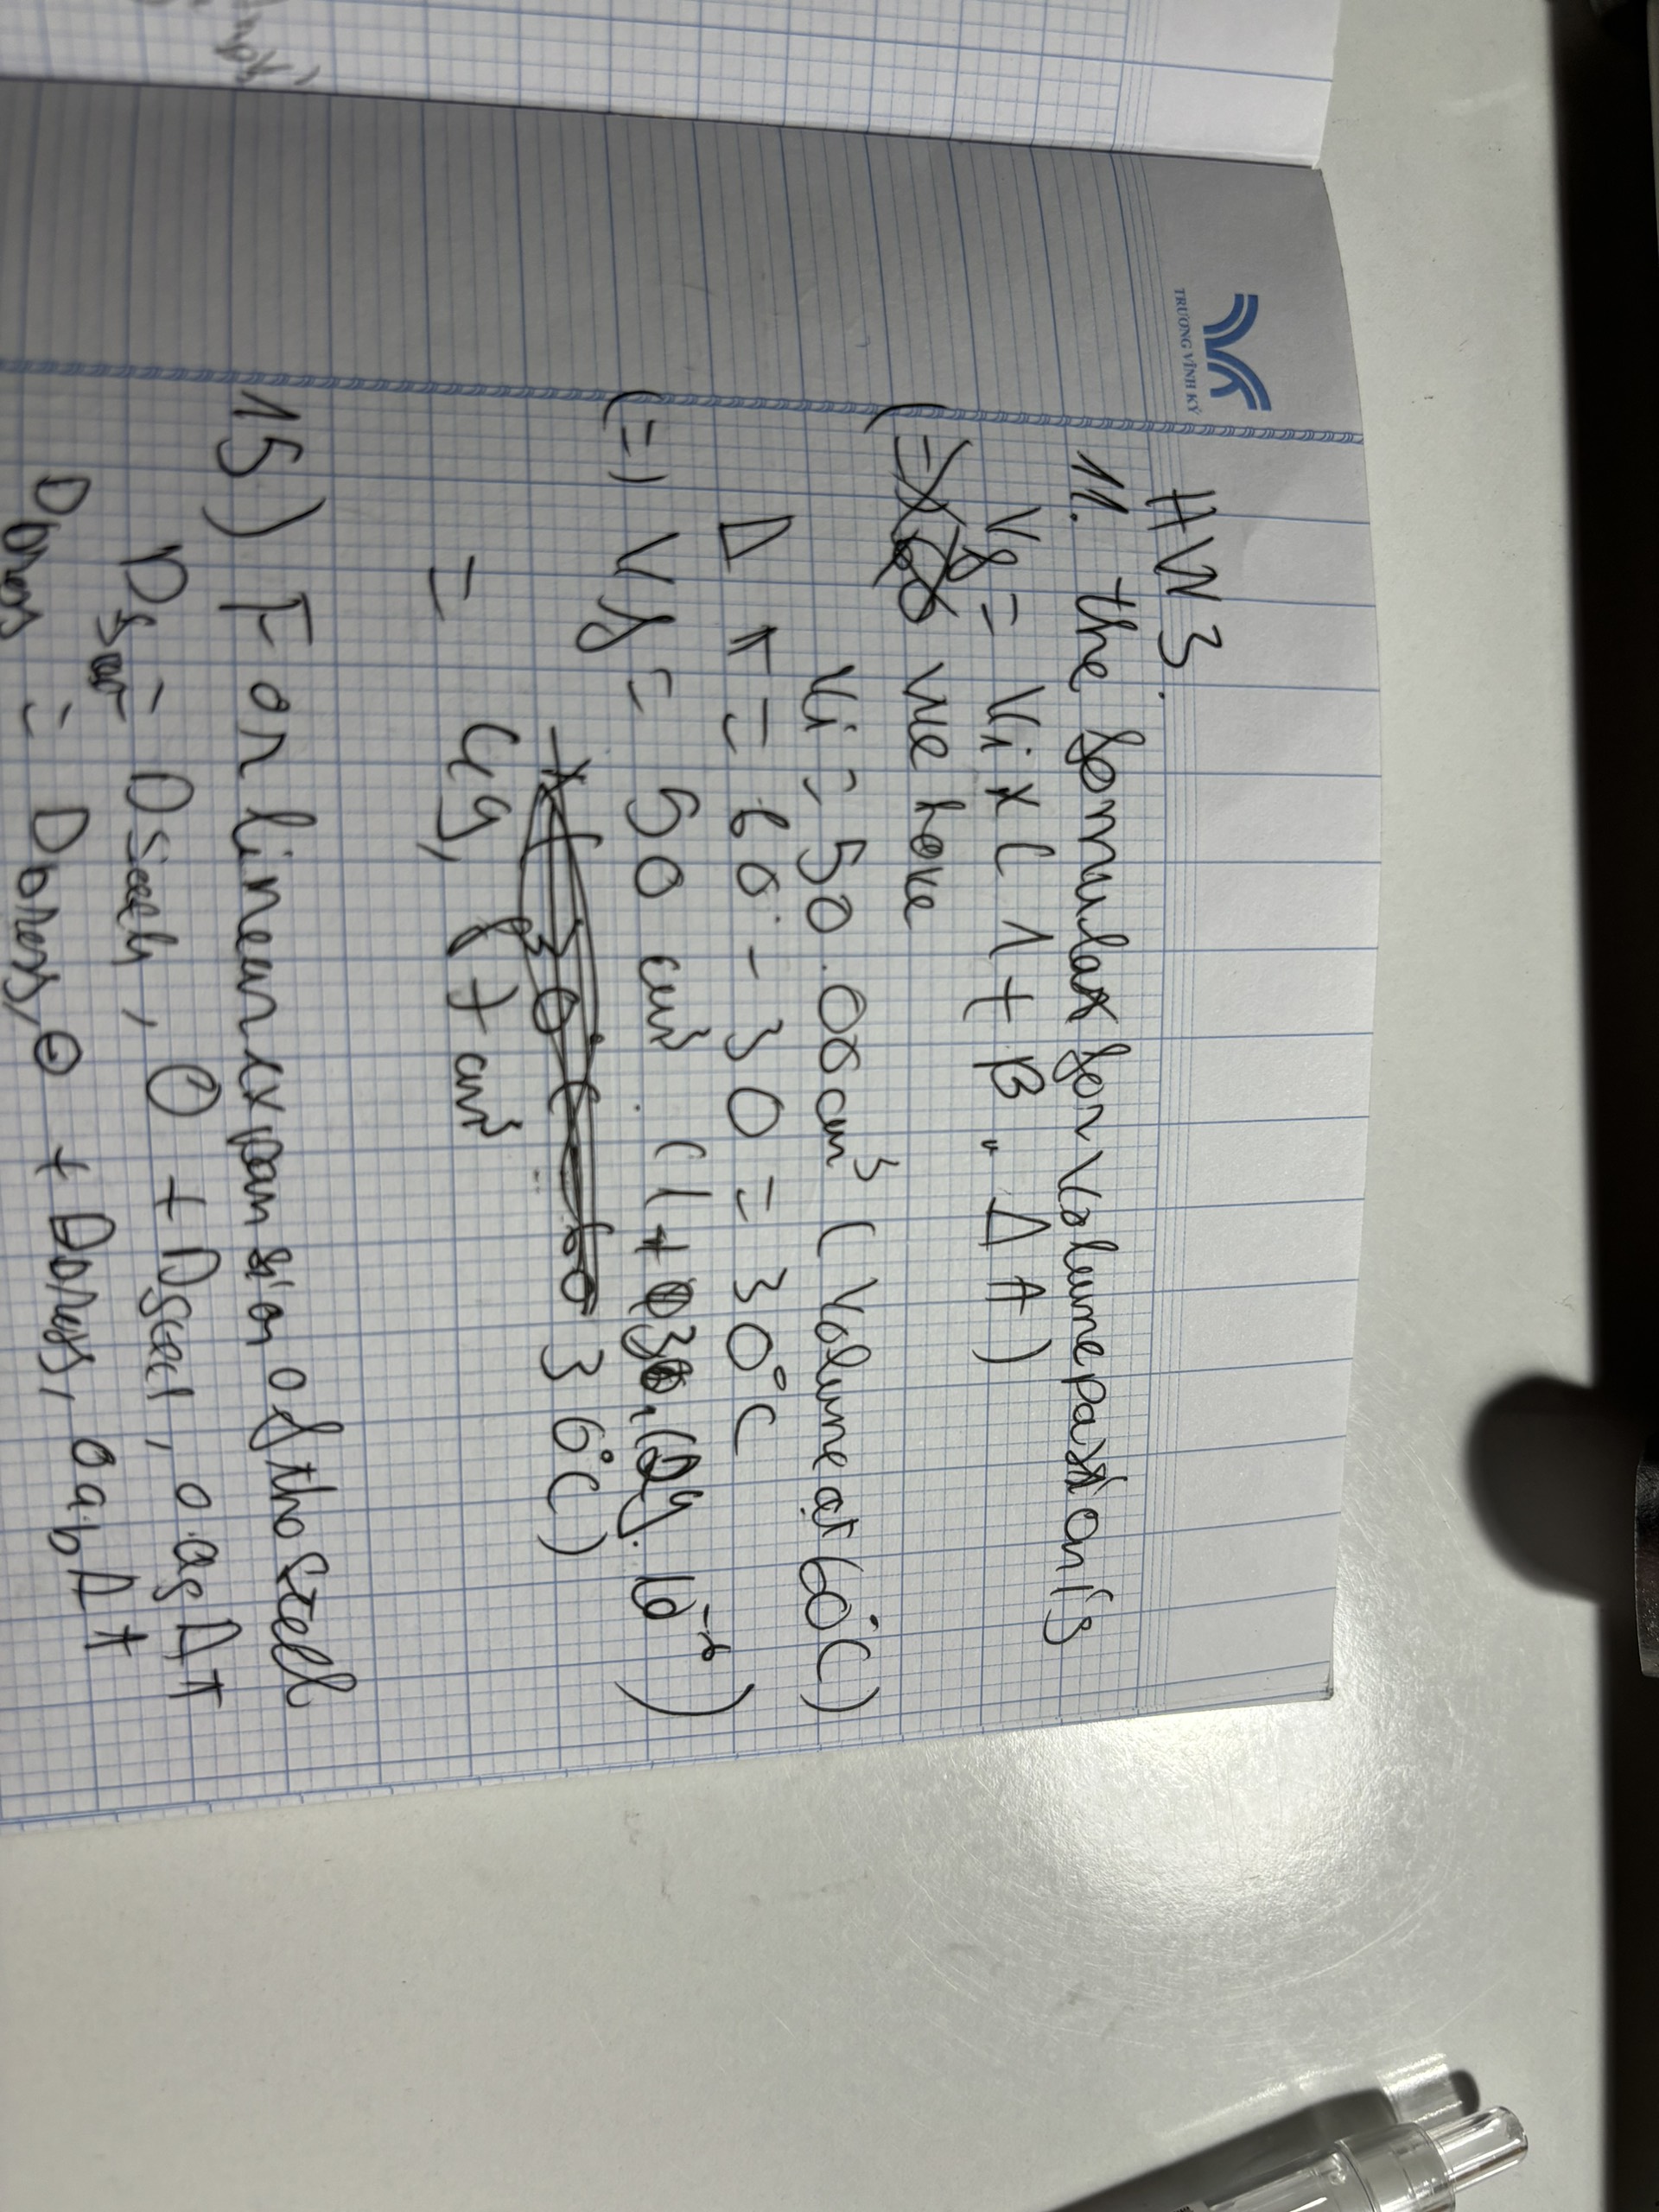 TRƯƠNG VĨNH KÝ
HW 3.
11. the formular for volume pasion is
Vf = Vi x ( 1 + β . Δ t )
we have
Vi = 50.00 cm³ ( Volume at 60°C)
Δ t = 60 - 30 = 30°C
(=) Vf = 50 cm³ . (1 +
3 6°C)
= 49, 87 cm³
15) For linear expansion of the steel
= Dsteel, 0 + Dsteel, 0 as Δt
Dbrass = Dbrass, 0 + Dbrass, 0 ab Δt